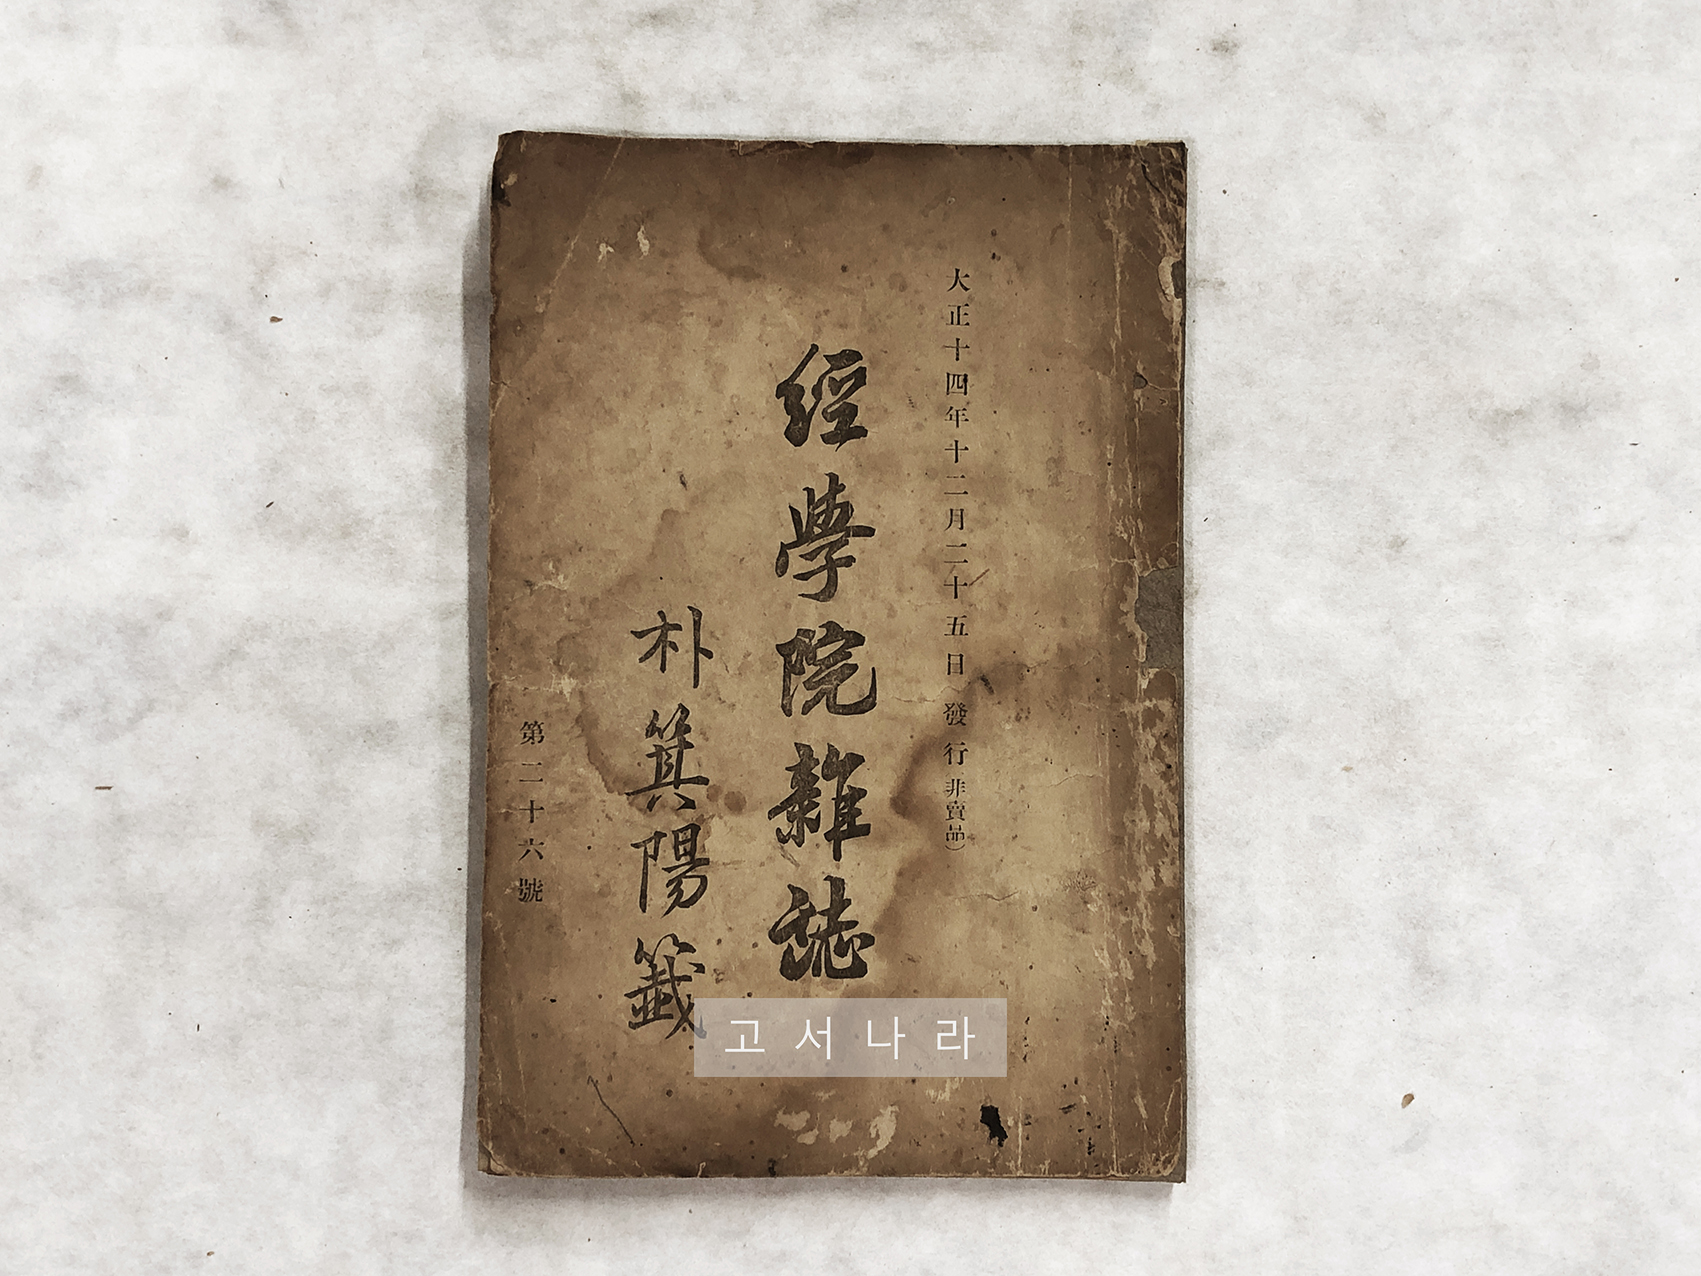 大正十四年十二月二十五日發行(非賣品)
經學院雜誌
朴箕陽籤
第二十六號
고서나라